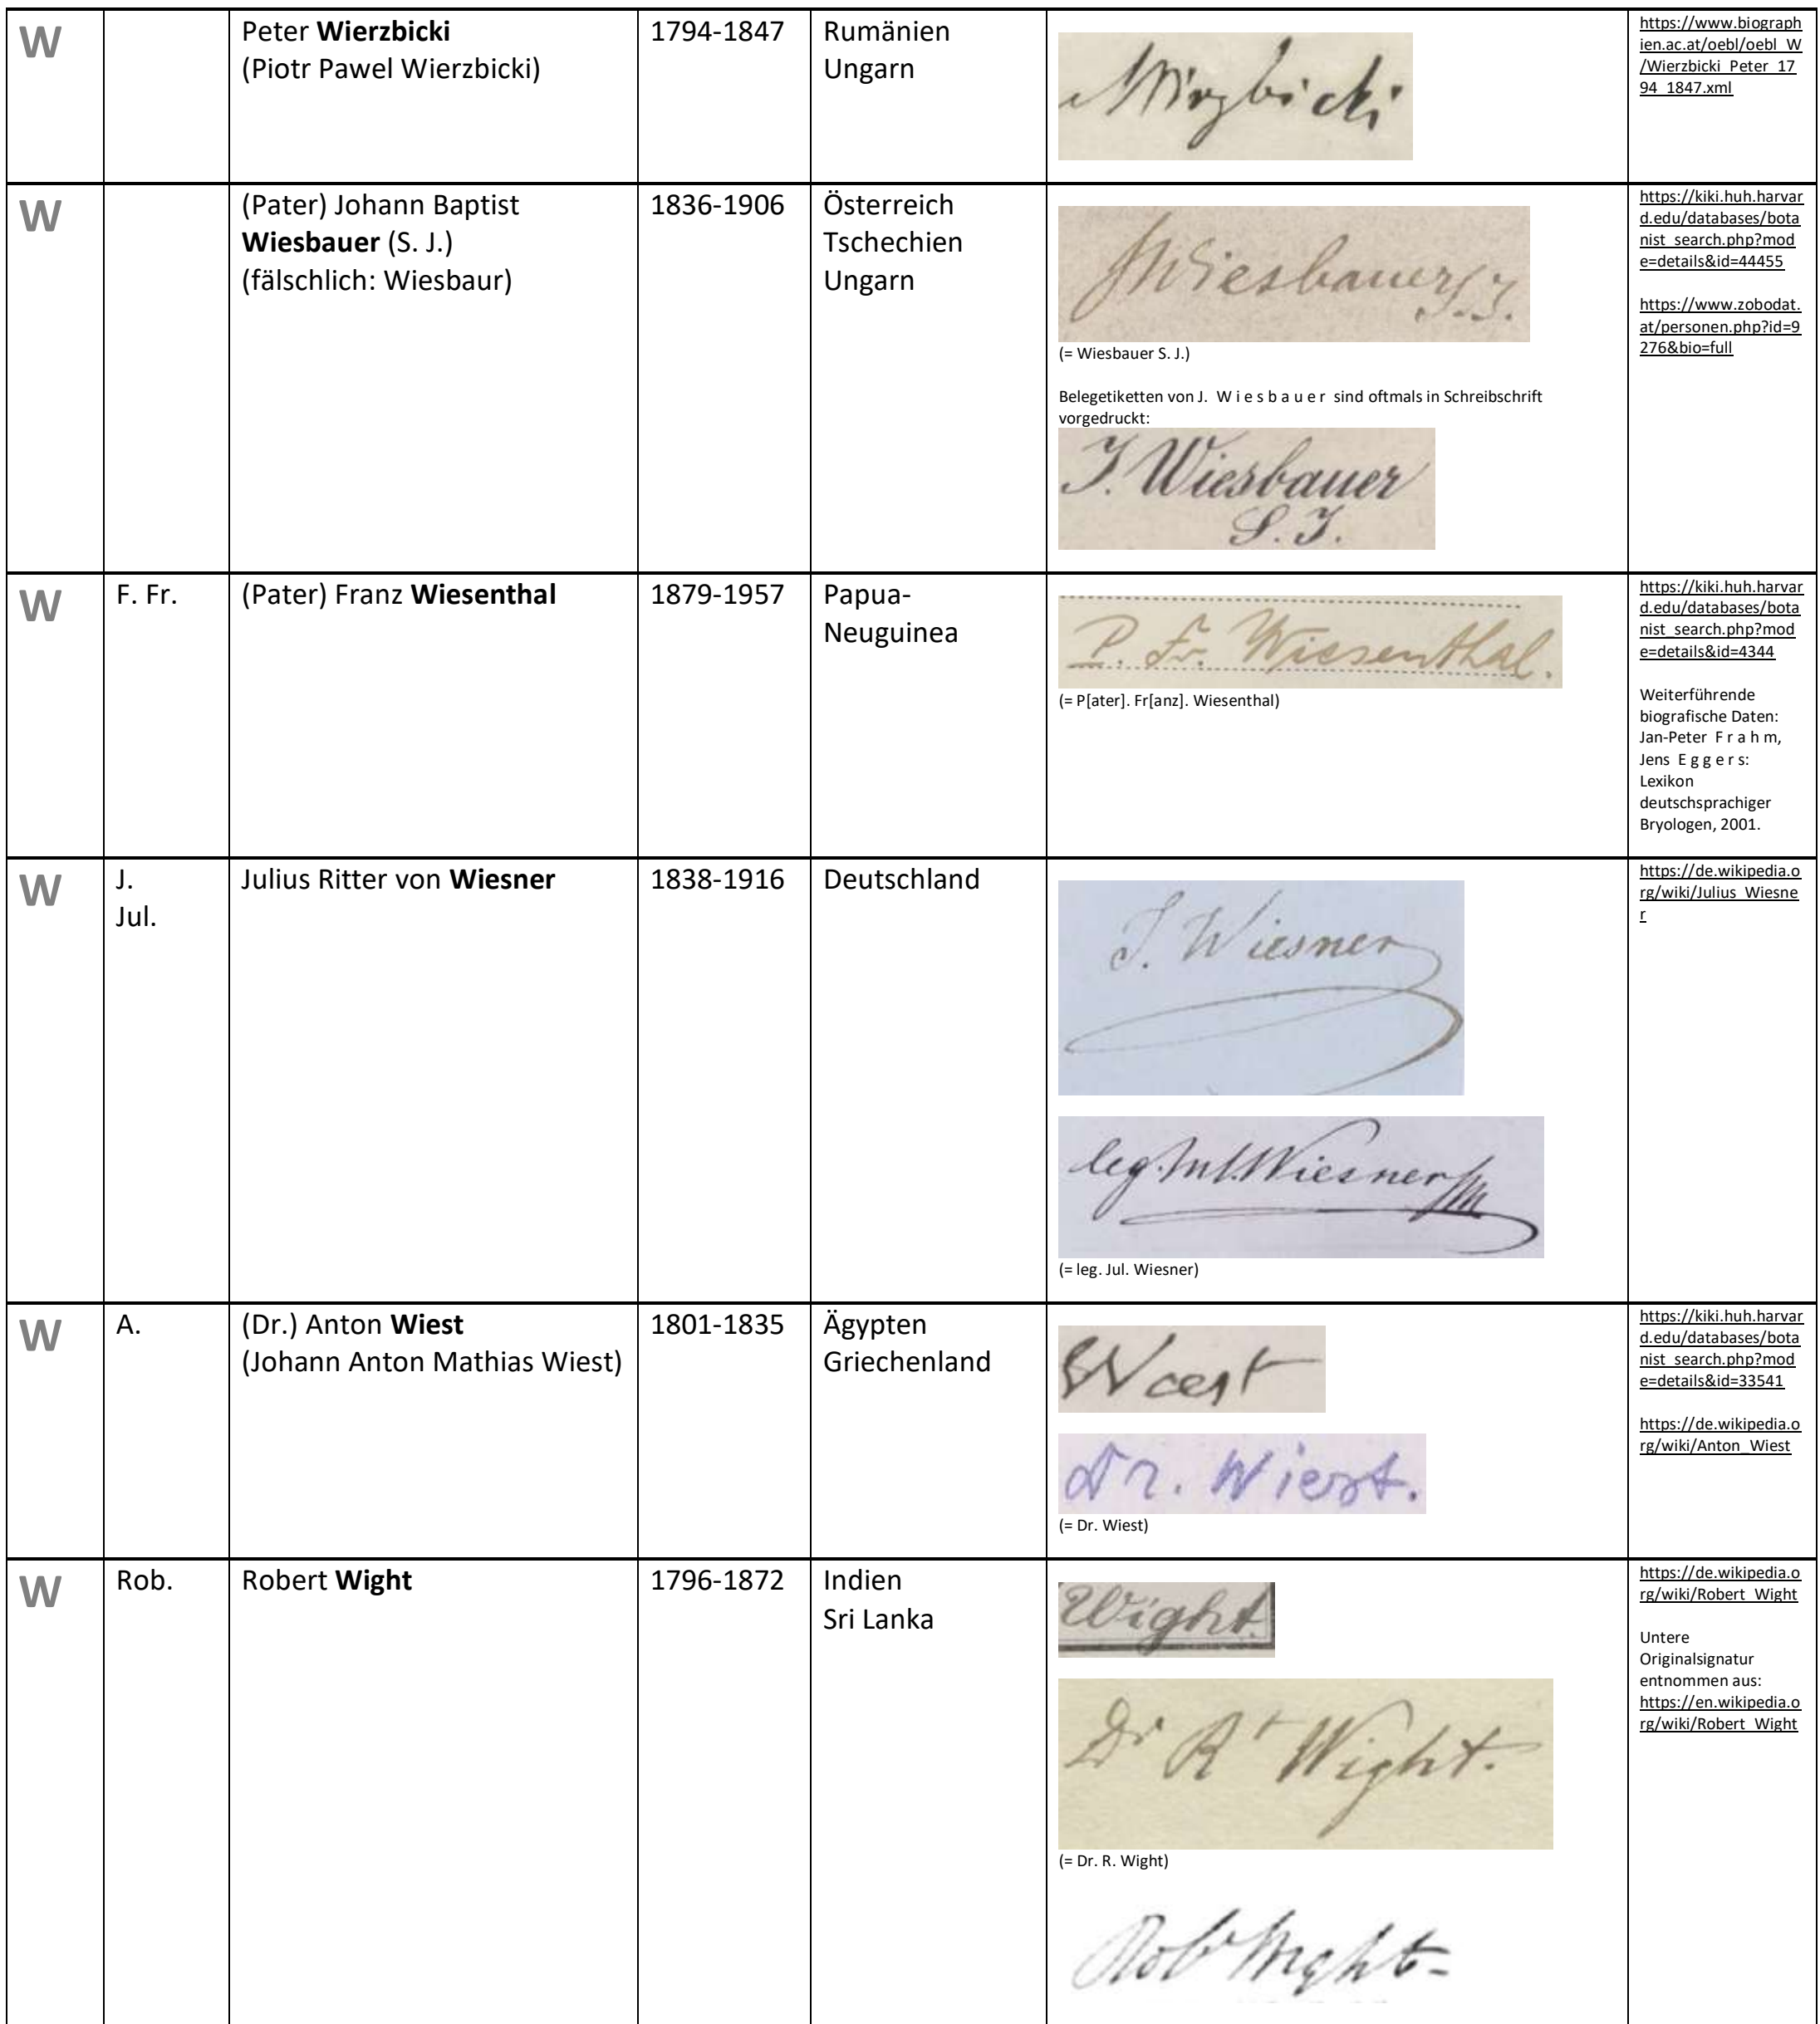 W
Peter Wierzbicki
(Piotr Pawel Wierzbicki)
1794-1847
Rumänien
Ungarn
Wirzbicki
https://www.biograph
ien.ac.at/oebl/oebl_W
/Wierzbicki_Peter_17
94_1847.xml
W
(Pater) Johann Baptist
Wiesbauer (S. J.)
(fälschlich: Wiesbaur)
1836-1906
Österreich
Tschechien
Ungarn
JWiesbauer S.J.
(= Wiesbauer S. J.)
Belegetiketten von J. W i e s b a u e r sind oftmals in Schreibschrift
vorgedruckt:
J. Wiesbauer
S. J.
https://kiki.huh.harvar
d.edu/databases/bota
nist_search.php?mod
e=details&id=44455
https://www.zobodat.
at/personen.php?id=9
276&bio=full
W
F. Fr.
(Pater) Franz Wiesenthal
1879-1957
Papua-
Neuguinea
P. Fr. Wiesenthal.
(= P[ater]. Fr[anz]. Wiesenthal)
https://kiki.huh.harvar
d.edu/databases/bota
nist_search.php?mod
e=details&id=4344
Weiterführende
biografische Daten:
Jan-Peter F r a h m,
Jens E g g e r s:
Lexikon
deutschsprachiger
Bryologen, 2001.
W
J.
Jul.
Julius Ritter von Wiesner
1838-1916
Deutschland
J. Wiesner
leg. Jul. Wiesner
(= leg. Jul. Wiesner)
https://de.wikipedia.o
rg/wiki/Julius_Wiesne
r
W
A.
(Dr.) Anton Wiest
(Johann Anton Mathias Wiest)
1801-1835
Ägypten
Griechenland
Wiest
Dr. Wiest.
(= Dr. Wiest)
https://kiki.huh.harvar
d.edu/databases/bota
nist_search.php?mod
e=details&id=33541
https://de.wikipedia.o
rg/wiki/Anton_Wiest
W
Rob.
Robert Wight
1796-1872
Indien
Sri Lanka
Wight.
Dr Rt Wight.
(= Dr. R. Wight)
Robt Wight
https://de.wikipedia.o
rg/wiki/Robert_Wight
Untere
Originalsignatur
entnommen aus:
https://en.wikipedia.o
rg/wiki/Robert_Wight